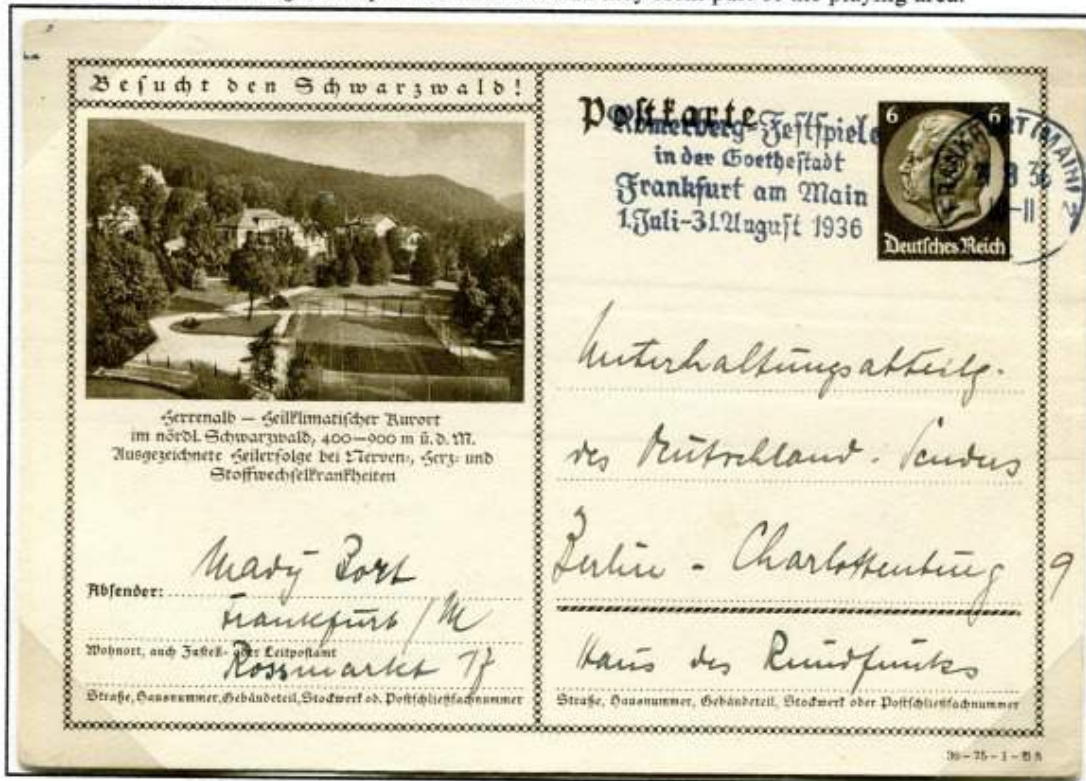 part of the playing area.
Besucht den Schwarzwald!
Herrenalb — Heilklimatischer Kurort
im nördl. Schwarzwald, 400—900 m ü. d. M.
Ausgezeichnete Heilerfolge bei Nerven-, Herz- und
Stoffwechselkrankheiten
Absender: Mady
Frankfurt / M
Wohnort, auch Zustell- oder Leitpostamt
Rossmarkt 17
Straße, Hausnummer, Gebäudeteil, Stockwerk od. Postschließfachnummer
Postkarte
Römerberg-Festspiele
in der Goethestadt
Frankfurt am Main
1. Juli-31. August 1936
6 6
Deutsches Reich
FRANKFURT (MAIN) 2
8 36
-11
Unterhaltungsabteilg.
des Deutschland-Senders
Berlin - Charlottenburg 9
Haus des Rundfunks
Straße, Hausnummer, Gebäudeteil, Stockwerk oder Postschließfachnummer